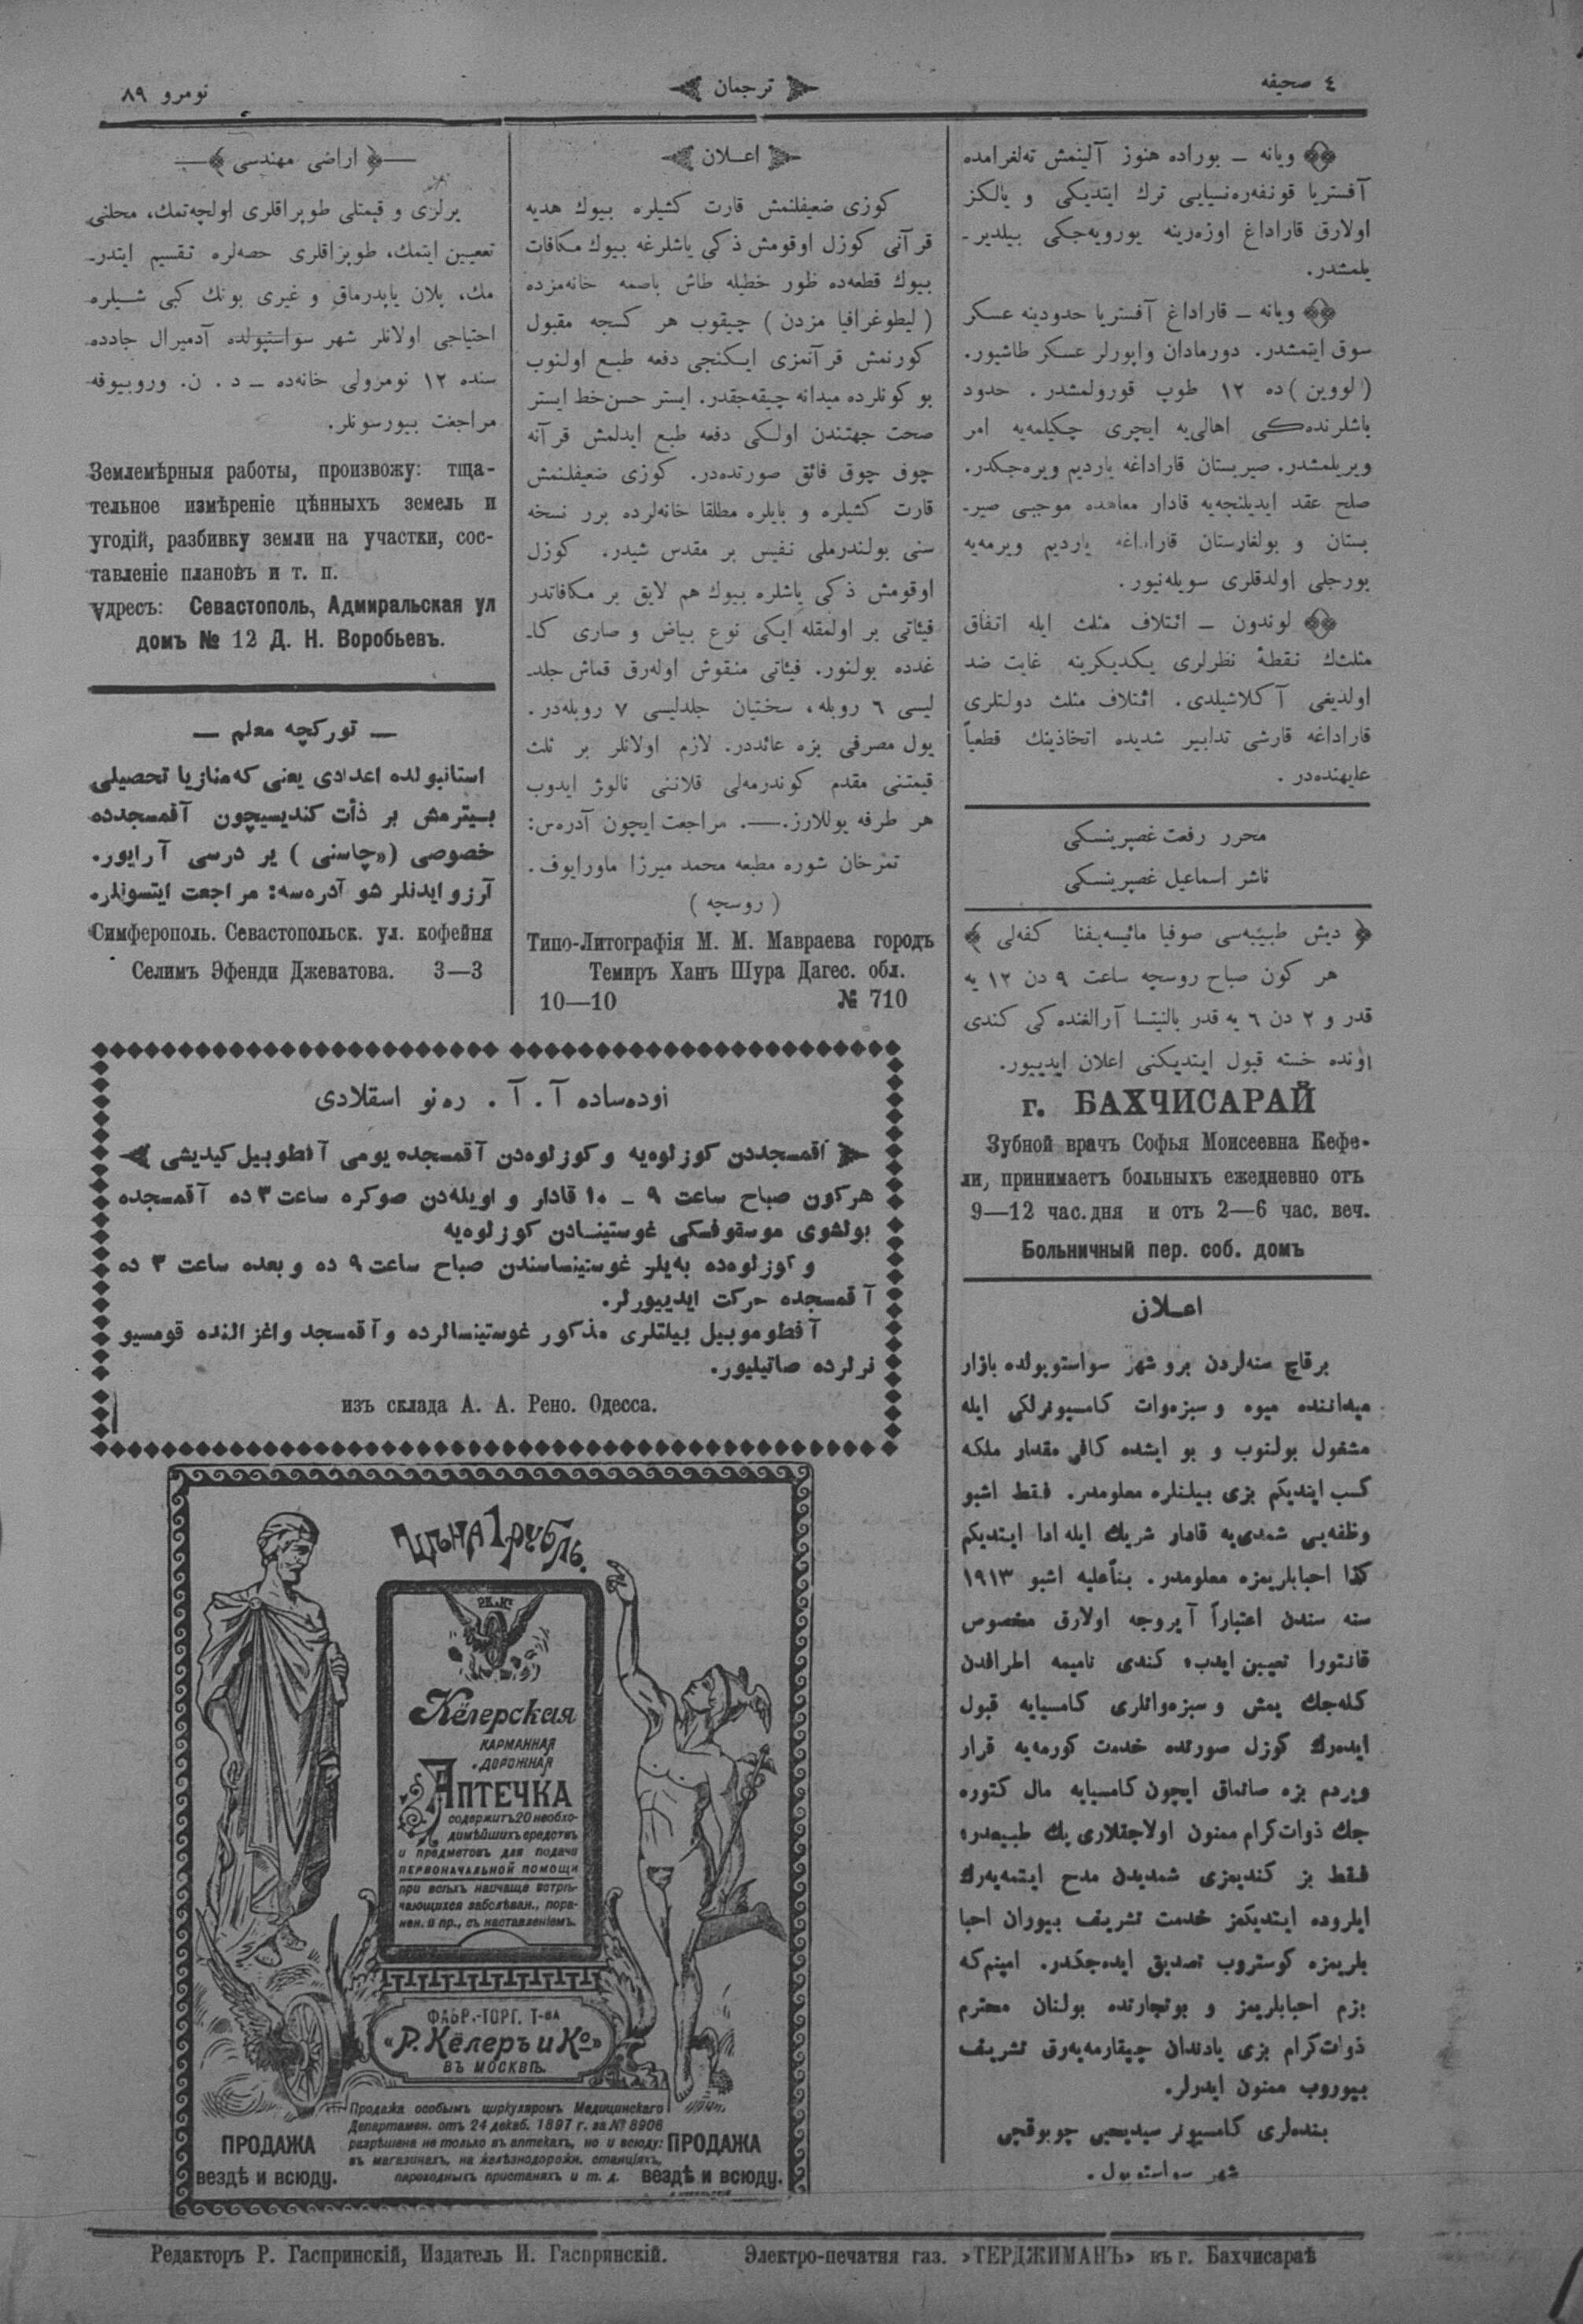 ٤ صحيفه
ترجمان
نومرو ٨٩
ويانه ــ بوراده هنوز آلينمش ته‌لغرامده
آفستريا قونفه‌ره‌نسيايى ترك ايتديكى و يالكز
اولارق قاراداغ اوزه‌رينه يورويه‌جكى بيلديرـ
يلمشدر.
ويانه ــ قاراداغ آفستريا حدودينه عسكر
سوق ايتمشدر. دورمادان واپورلر عسكر طاشيور.
(لووين) ده ١٢ طوپ قورولمشدر. حدود
باشلرنده‌كى اهالى‌يه ايچرى چكيلمه‌يه امر
ويريلمشدر. صيربستان قاراداغه ياردیم ويره‌جكدر.
صلح عقد ايديلنجه‌يه قادار معاهده موجبى صيرـ
بستان و بولغارستان قاراداغه ياردیم ويرمه‌يه
بورجلى اولدقلرى سويله‌نيور.
لوندون ــ ائتلاف مثلث ايله اتفاق
مثلثك نقطهٔ نظرلرى يكديكرينه غايت ضد
اولديغى آكلاشيلدى. ائتلاف مثلث دولتلرى
قاراداغه قارشى تدابير شديده اتخاذينك قطعياً
عليهنده‌در.
محرر رفعت غصپرينسكى
ناشر اسماعيل غصپرينسكى
ديش طبيبه‌سى صوفيا مائيسه‌يفنا كفه‌لى
هر كون صباح روسچه ساعت ٩ دن ١٢ يه
قدر و ٢ دن ٦ يه قدر بالنيتسا آرالغنده‌كى كندى
اونده خسته قبول ايتديكنى اعلان ايدييور.
г. БАХЧИСАРАЙ
Зубной врачъ Софья Моисеевна Кефе-
ли, принимаетъ больныхъ ежедневно отъ
9—12 час. дня и отъ 2—6 час. веч.
Больничный пер. соб. домъ
اعــلان
برقاچ سنه‌لردن برو شهر سواستوبولده بازار
ميداننده ميوه و سبزه‌وات كامسيونرلكى ايله
مشغول بولنوب و بو ايشده كافى مقدار ملكه
كسب ايتديكم بزى بيلنلره معلومدر. فقط اشبو
وظفه‌يى شمدى‌يه قادار شريك ايله ادا ايتديكم
كذا احبابلريمزه معلومدر. بناًعليه اشبو ١٩١٣
سنه سندن اعتباراً آيروجه اولارق مخصوص
قانتورا تعيين ايدب، كندى ناميمه اطرافدن
كله‌جك يمش و سبزه‌واتلرى كامسيايه قبول
ايده‌رك كوزل صورتده خدمت كورمه‌يه قرار
ويردم بزه صاتماق ايچون كامسيايه مال كتوره
جك ذوات كرام ممنون اولاجقلارى پك طبيعدر؛
فقط بز كنديمزى شمديدن مدح ايتمه‌يه‌رك
ايلروده ايتديكمز خدمت تشريف بيوران احبا
بلريمزه كوستروب تصديق ايده‌جكدر. امينم‌كه
بزم احبابلريمز و بوتجارتده بولنان محترم
ذوات كرام بزى يادندان چيقارمه‌يه‌رق تشريف
بيوروب ممنون ايدرلر.
بنده‌لرى كامسيونر سيديحيى چوبوقچى
شهر سواستوپول.
اعــلان
كوزى ضعيفلنمش قارت كشيلره بيوك هديه
قرآنى كوزل اوقومش ذكى ياشلرغه بيوك مكافات
بيوك قطعه‌ده ظور خطيله طاش باصمه خانه‌مزده
(ليطوغرافيا مزدن) چيقوب هر كسجه مقبول
كورنمش قرآنمزى ايكنجى دفعه طبع اولنوب
بو كونلرده ميدانه چيقه‌جقدر. ايستر حسن خط ايستر
صحت جهتندن اولكى دفعه طبع ايدلمش قرآنه
چوق چوق فائق صورتده‌در. كوزى ضعيفلنمش
قارت كشيلره و بايلره مطلقا خانه‌لرده برر نسخه
سنى بولندرملى نفيس بر مقدس شيدر. كوزل
اوقومش ذكى ياشلره بيوك هم لايق بر مكافاتدر
فيئاتى بر اولمقله ايكى نوع بياض و صارى كاـ
غدده بولنور. فيئاتى منقوش اوله‌رق قماش جلدـ
ليسى ٦ روبله، سختيان جلدليسى ٧ روبله‌در.
يول مصرفى بزه عائددر. لازم اولانلر بر ثلث
قيمتنى مقدم كوندرمه‌لى قلاننى نالوژ ايدوب
هر طرفه يوللارز.—. مراجعت ايچون آدره‌س:
تمرخان شوره مطبعه محمد ميرزا ماورايوف.
(روسچه)
Типо-Литографія М. М. Мавраева городъ
Темиръ Ханъ Шура Дагес. обл.
10—10 № 710
اراضى مهندسى
يرلرى و قيمتلى طوپراقلرى اولچه‌تمك، محلنى
تععيين ايتمك، طوپراقلرى حصه‌لره تقسيم ايتدرـ
مك، پلان ياپدرماق و غيرى بونك كبى شــيلره
احتياجى اولانلر شهر سواستپولده آدميرال جادده
سنده ١٢ نومرولى خانه‌ده ــ د. ن. وروبيوفه
مراجعت بيورسونلر.
Землемѣрныя работы, произвожу: тща-
тельное измѣреніе цѣнныхъ земель и
угодій, разбивку земли на участки, сос-
тавленіе плановъ и т. п.
Адресъ: Севастополь, Адмиральская ул
домъ № 12 Д. Н. Воробьевъ.
ــ توركچه معلم ــ
استانبولده اعدادى يعنى كه‌منازيا تحصيلى
بيترمش بر ذأت كنديسيچون آقمسجدده
خصوصى («چاسنى») ير درسى آرايور.
آرزو ايدنلر شو آدره‌سه: مراجعت ايتسونلر.
Симферополь. Севастопольск. ул. кофейня
Селимъ Эфенди Джеватова. 3—3
اوده‌ساده آ. آ. ره‌نو اسقلادى
آقمسجددن كوزلوه‌يه و كوزلوه‌دن آقمسجده يومى آفطوبيل كيديشى
هركون صباح ساعت ٩ ــ ١٠ قادار و اويله‌دن صوكره ساعت ٣ ده آقمسجده
بولشوى موسقوفسكى غوستينسادن كوزلوه‌يه
و كوزلوه‌ده به‌يلر غوستينساسندن صباح ساعت ٩ ده و بعده ساعت ٣ ده
آقمسجده حركت ايدييورلر.
آفطوموبيل بيلتلرى مذكور غوستينسالرده و آقمسجد واغزالنده قومسيو
نرلرده صاتيليور.
изъ склада А. А. Рено. Одесса.
Цѣна 1 рубль.
Р.К. и Ко
Кёлерская
КАРМАННАЯ
ДОРОЖНАЯ
АПТЕЧКА
содержитъ 20 необхо-
димѣйшихъ средствъ
и предметовъ для подачи
ПЕРВОНАЧАЛЬНОЙ ПОМОЩИ
при всѣхъ наичаще встрѣ-
чающихся заболѣван., пора-
нен. и пр., съ наставленіемъ.
ФАБР.-ТОРГ. Т-ва
«Р. Кёлеръ и Ко»
ВЪ МОСКВѢ.
Продажа особымъ циркуляромъ Медицинскаго
Департамен. отъ 24 декаб. 1897 г. за № 8906
разрѣшена не только въ аптекахъ, но и всюду:
въ магазинахъ, на желѣзнодорожн. станціяхъ,
пароходныхъ пристаняхъ и т. д.
ПРОДАЖА
вездѣ и всюду.
ПРОДАЖА
вездѣ и всюду.
Редакторъ Р. Гаспринскій, Издатель И. Гаспринскій. Электро-печатня газ. »ТЕРДЖИМАНЪ» въ г. Бахчисараѣ